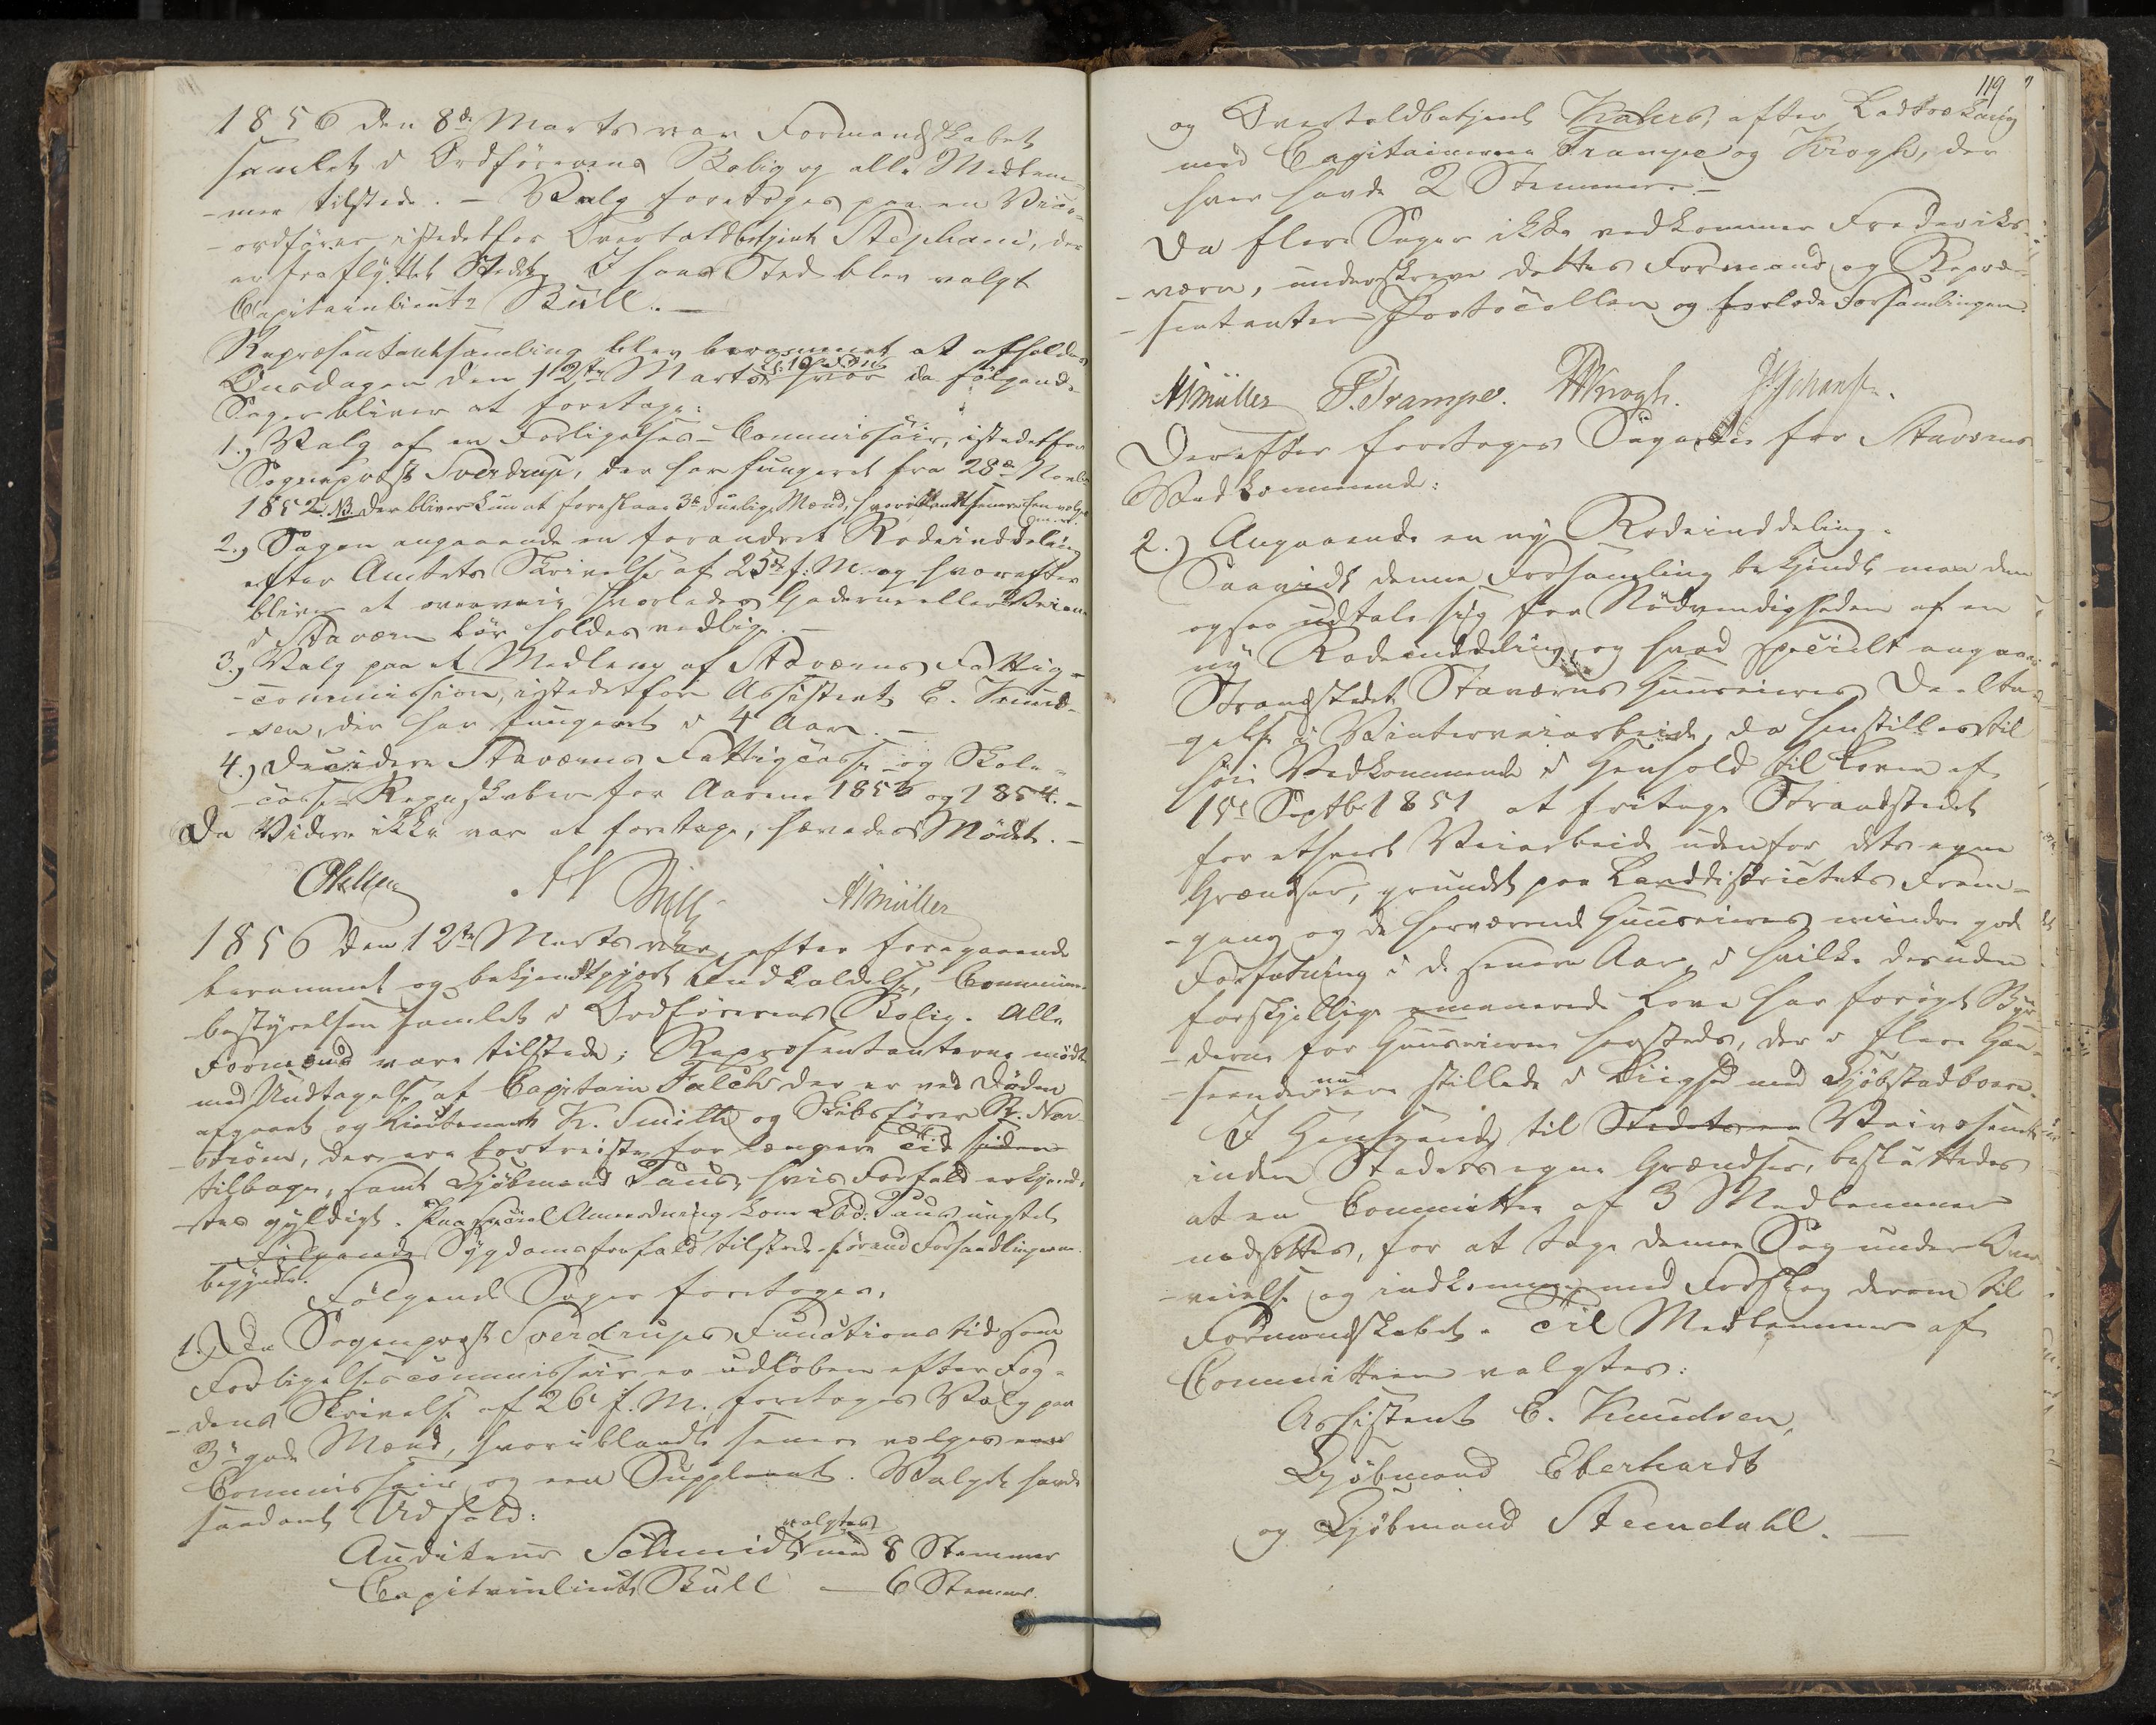 1856 den 8de Marts var Formandskabet
samlet i Ordførerens Bolig og alle Medlem-
-mer tilstede. - Valg foretoges paa en Vice-
-ordfører istedetfor Overtoldbetjent Stephani, der
er fraflyttet Stedet. I hans Sted blev valgt
Capitainlieutn Bull. -
Repræsentantsamling blev berammet at afholdes
Onsdagen den 12te Marts Kl: 10 hvor da følgende
Sager bliver at foretage:
1.) Valg af en Forligelses-Commissair, istedetfor
Sogneprost Sverdrup, der har fungeret fra 28de Novbr
1852. NB. Der bliver kun at foreslaae 3de duelige Mænd, hvoriblandt senere een vælges
2.) Sagen angaaende en forandret Rodeinddeling
efter Amtets Skrivelse af 25de f: M. og hvorefter
bliver at overveie hvorledes Gaderne eller Veiene
i Staværn bør holdes vedlige. -
3.) Valg paa et Medlem af Staværns Fattig-
-commission, istedetfor Assistent E. Knud-
-sen, der har fungeret i 4 Aar. -
4.) Decidere Staværns Fattigcasse og Skole-
-casse Regnskaber for Aarene 1853 og 1854. -
Da Videre ikke var at foretage, hævedes Mødet. -
Bull MMüller
1856 den 12te Marts var, efter foregaaende
berammet og bekjendtgjort Indkaldelse, Commune-
bestyrelsen samlet i Ordførerens Bolig. Alle
Formænd vare tilstede; Repræsentanterne mødte
med Undtagelse af Capitain Falch der er ved Døden
afgaaet og Lieutenant K. Smith og Skibsfører B. Nor-
-strøm, der ere bortreiste for længere Tid siden
tilbage, samt Kjøbmand Paus, hvis Forfald erkjend-
-tes gyldigt. Paa Anmodning kom Kbd: Paus uagtet
Følgende Sygdomsforfald tilstede førend Forhandlingerne
begyndte.
Følgende Sager foretoges,
1.) Da Sogneprost Sverdrups Functionstid som
Forligelsescommissair er udløben efter Fog-
-dens Skrivelse af 26de f. M., foretoges Valg paa
3de gode Mænd, hvoriblandt senere vælges een
Commissair og een Suppleant. Valget havde
saadant Udfald:
Auditeur Schmidt valgtes med 8 Stemmer
Capitainlieutn Bull — 6 Stemmer.
119
og Overtoldbetjent Krahn, efter Lodtrækning
med Capitainerne Trampe og Krogh, der
hver havde 2 Stemmer. -
Da flere Sager ikke vedkommer Frederiks-
-værn, underskreve dettes Formænd og Repræ-
-sentanter Protocollen og forlode Forsamlingen.
MMüller F. Trampe. Krogh. J. Johansen.
Derefter foretoges Sagerne for Staværns
Vedkommende:
2.) Angaaende en ny Rodeinddeling.
Saavidt denne Forsamling bekjendt maa den
ogsaa udtale sig for Nødvendigheden af en
ny Rodeinddeling, og hvad specielt angaaer
Strandstedet Staværns Huuseieres Deelta-
-gelse i Vinterveiarbeide, da henstilles til
høie Vedkommende i Henhold til Loven af
15de Septbr 1851 at fritage Strandstedet
for ethvert Veiarbeide udenfor dets egne
Grændser, grundet paa Landdistrictets Frem-
-gang og de herværende Huuseieres mindre gode
Forfatning i de senere Aar, i hvilke desuden
forskjellige emanerede Love har forøget Byr-
-derne for Huuseierne hersteds, der i flere Hen-
-seender nu ere stillede i Liighed med Kjøbstadboere.
I Henseende til Stedets Veivæsenet
inden Stedets egne Grændser, besluttedes
at en Committee af 3 Medlemmer
nedsættes, for at tage denne Sag under Over-
-veielse og indkomme med Forslag derom til
Formandskabet. Til Medlemmer af
Committeen valgtes:
Assistent E. Knudsen,
Kjøbmand Eberhardt
og Kjøbmand Steendahl. —